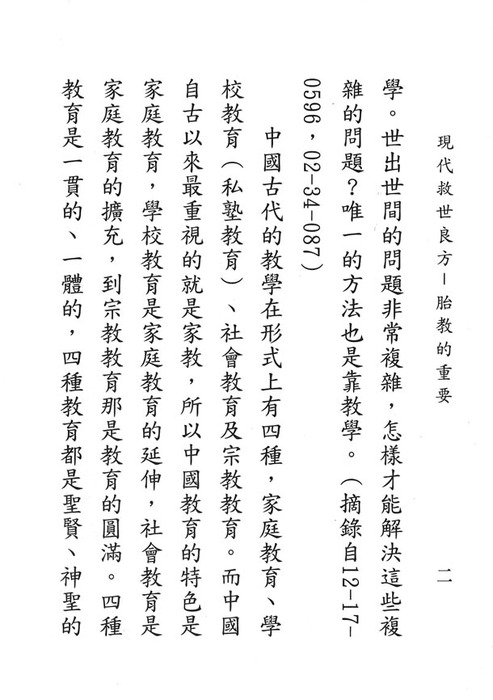 現代救世良方－胎教的重要
二
學。世出世間的問題非常複雜，怎樣才能解決這些複
雜的問題？唯一的方法也是靠教學。（摘錄自12-17-
0596，02-34-087）
中國古代的教學在形式上有四種，家庭教育、學
校教育（私塾教育）、社會教育及宗教教育。而中國
自古以來最重視的就是家教，所以中國教育的特色是
家庭教育，學校教育是家庭教育的延伸，社會教育是
家庭教育的擴充，到宗教教育那是教育的圓滿。四種
教育是一貫的、一體的，四種教育都是聖賢、神聖的